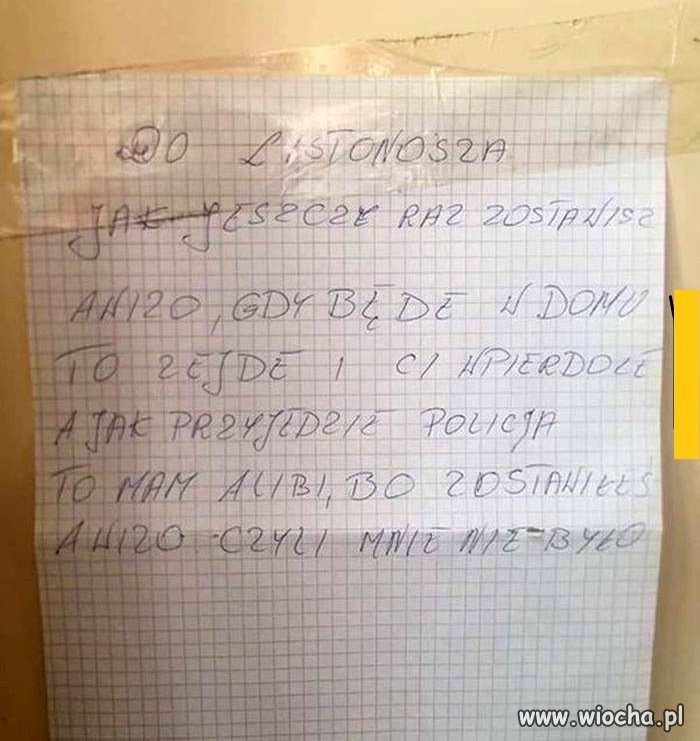 DO LISTONOSZA
JAK JESZCZE RAZ ZOSTAWISZ
AWIZO, GDY BĘDE W DOMU
TO ZEJDE I CI WPIERDOLE
A JAK PRZYJEDZIE POLICJA
TO MAM ALIBI, BO ZOSTAWIŁEŚ
AWIZO CZYLI MNIE NIE BYŁO
www.wiocha.pl